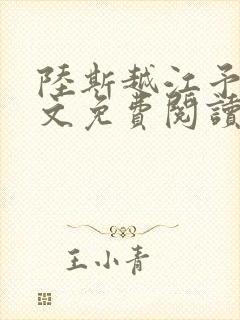 陸斯越江予
文免費閱讀
王小青